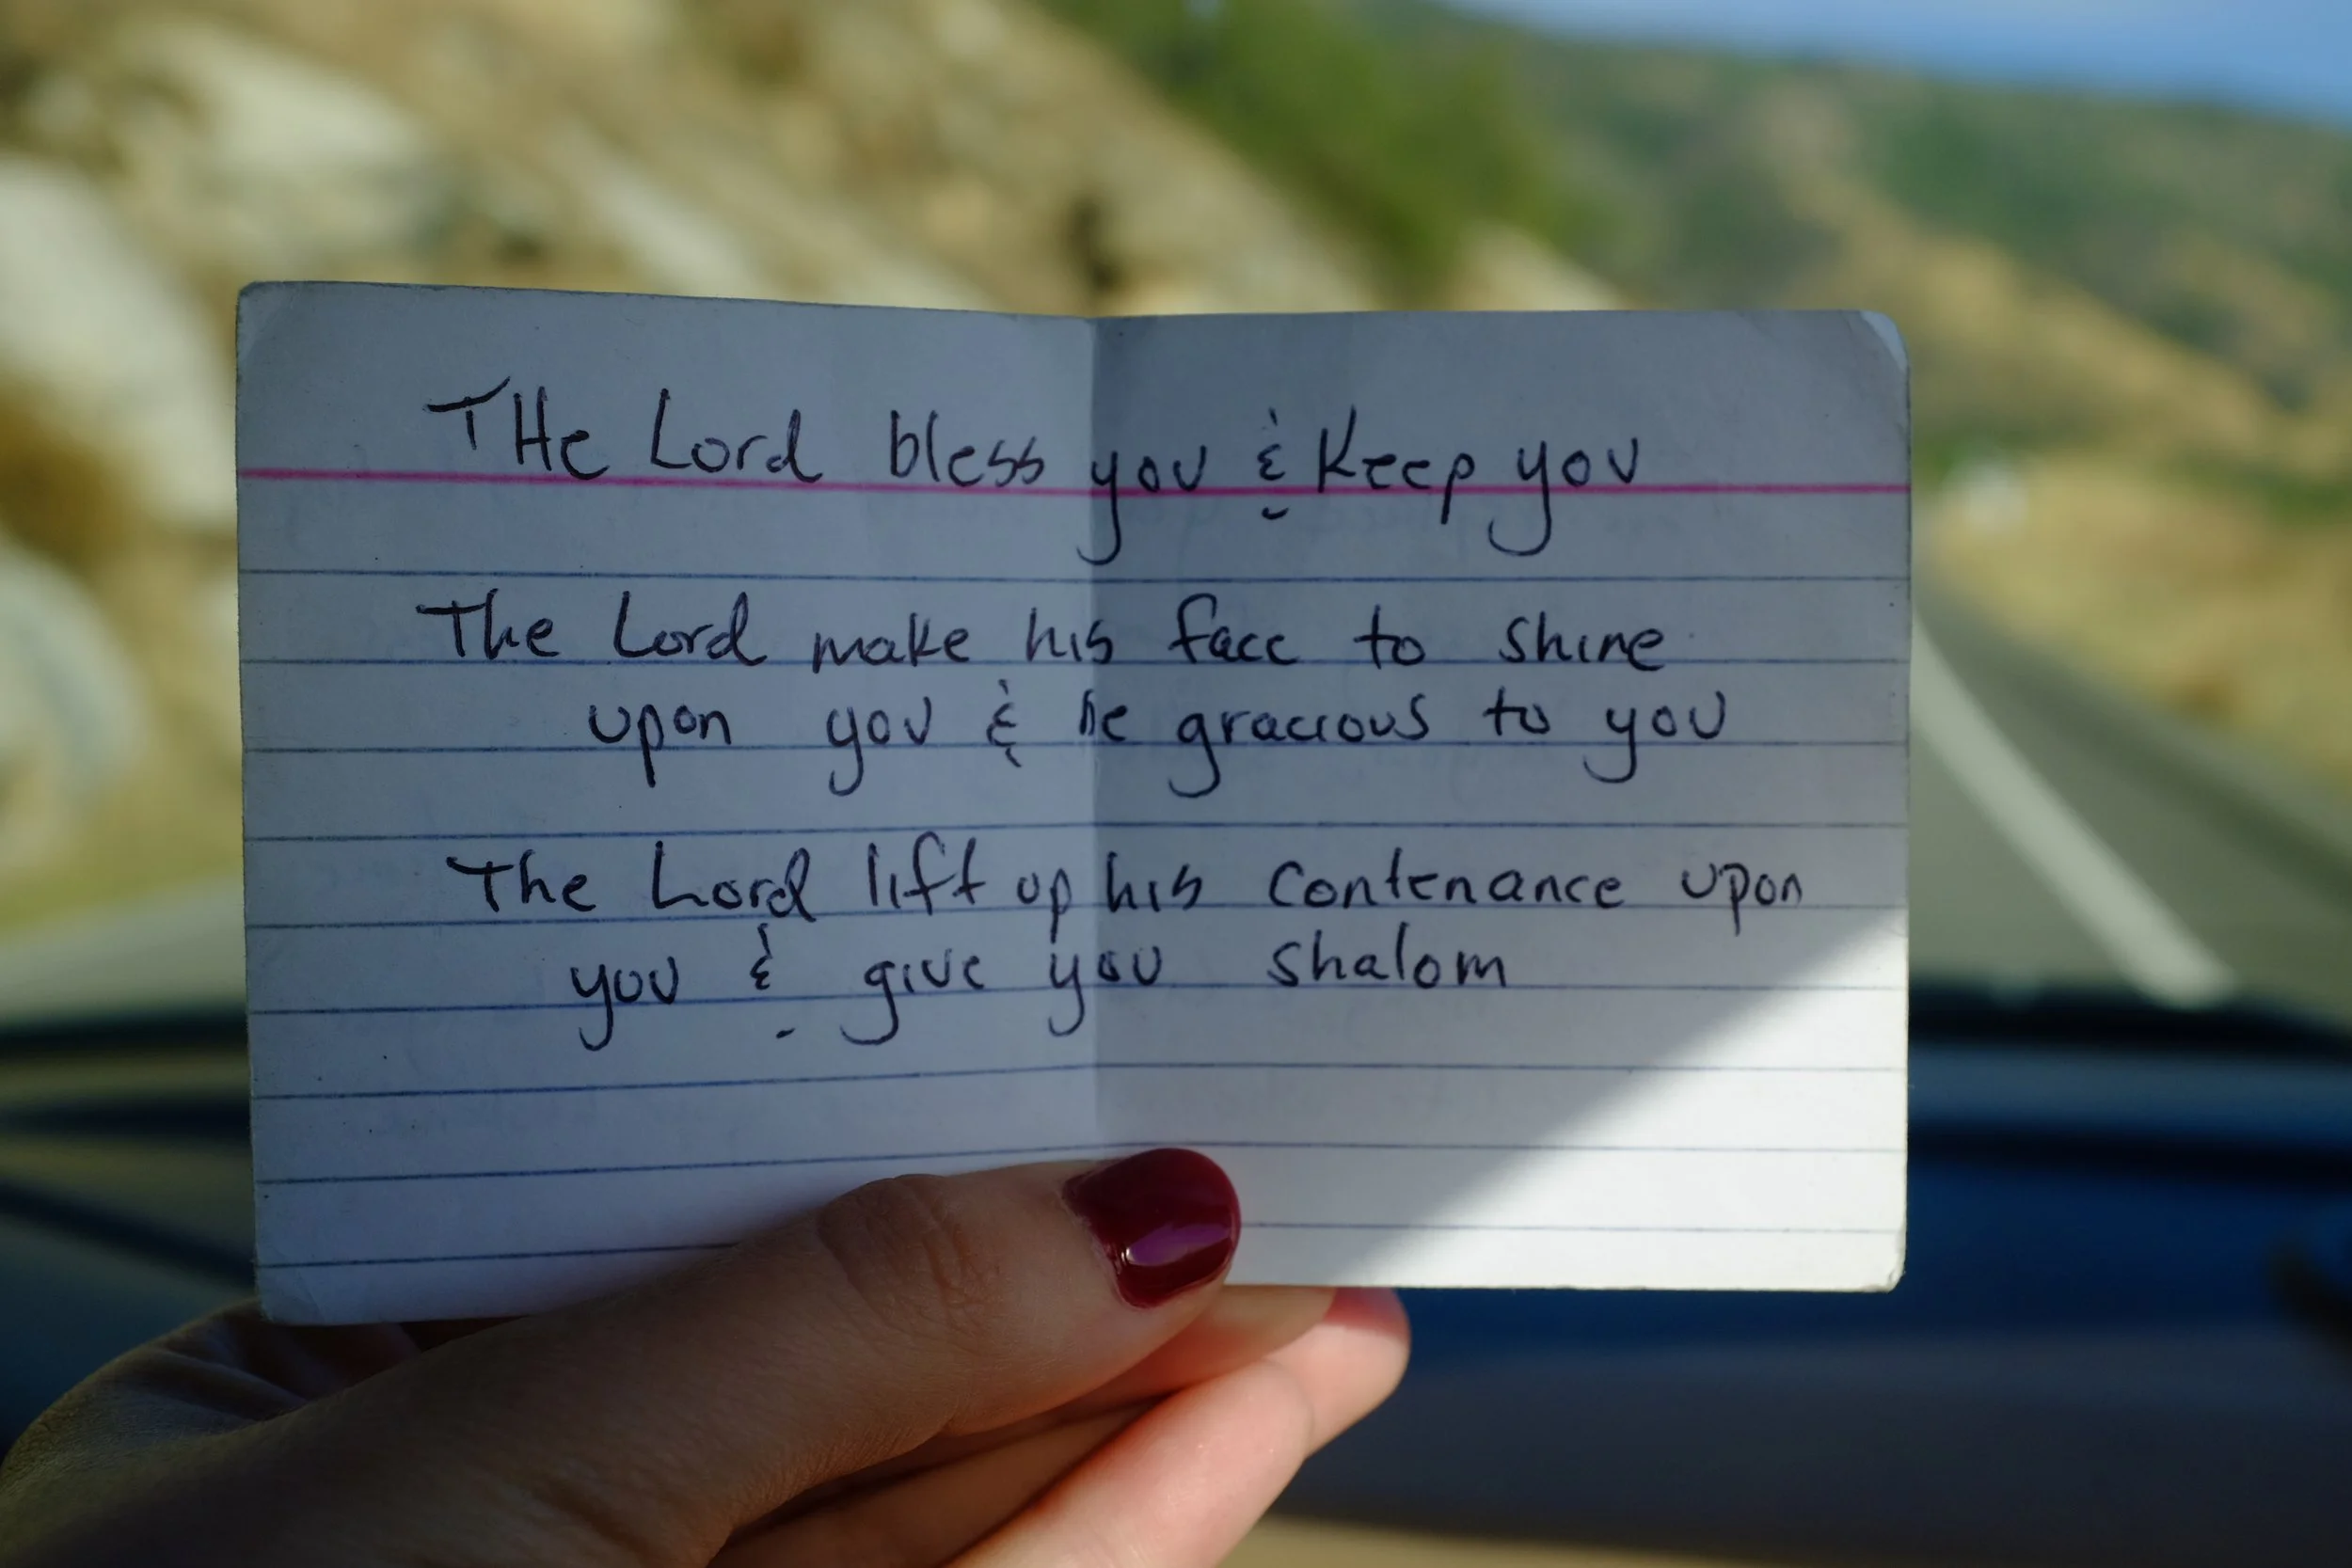 THe Lord bless you & Keep you
The Lord make his face to shine
upon you & be gracious to you
The Lord lift up his contenance upon
you & give you shalom